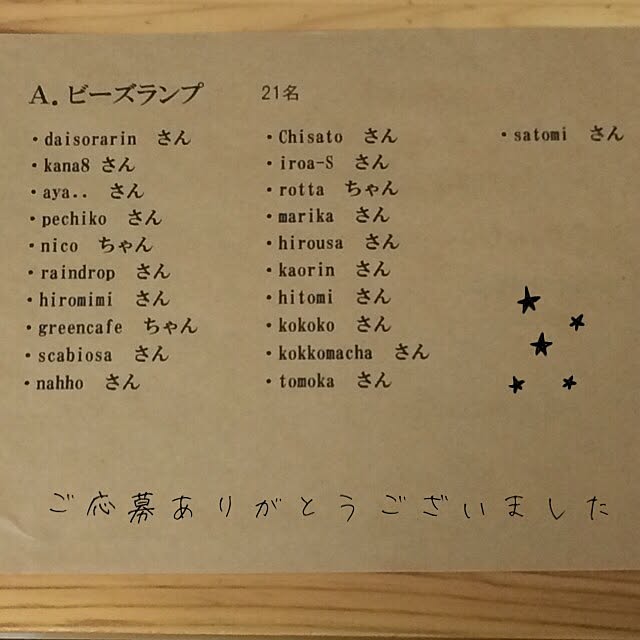 A. ビーズランプ 21名
・daisorarin さん
・kana8 さん
・aya.. さん
・pechiko さん
・nico ちゃん
・raindrop さん
・hiromimi さん
・greencafe ちゃん
・scabiosa さん
・nahho さん
・Chisato さん
・iroa-S さん
・rotta ちゃん
・marika さん
・hirousa さん
・kaorin さん
・hitomi さん
・kokoko さん
・kokkomacha さん
・tomoka さん
・satomi さん
ご応募ありがとうございました